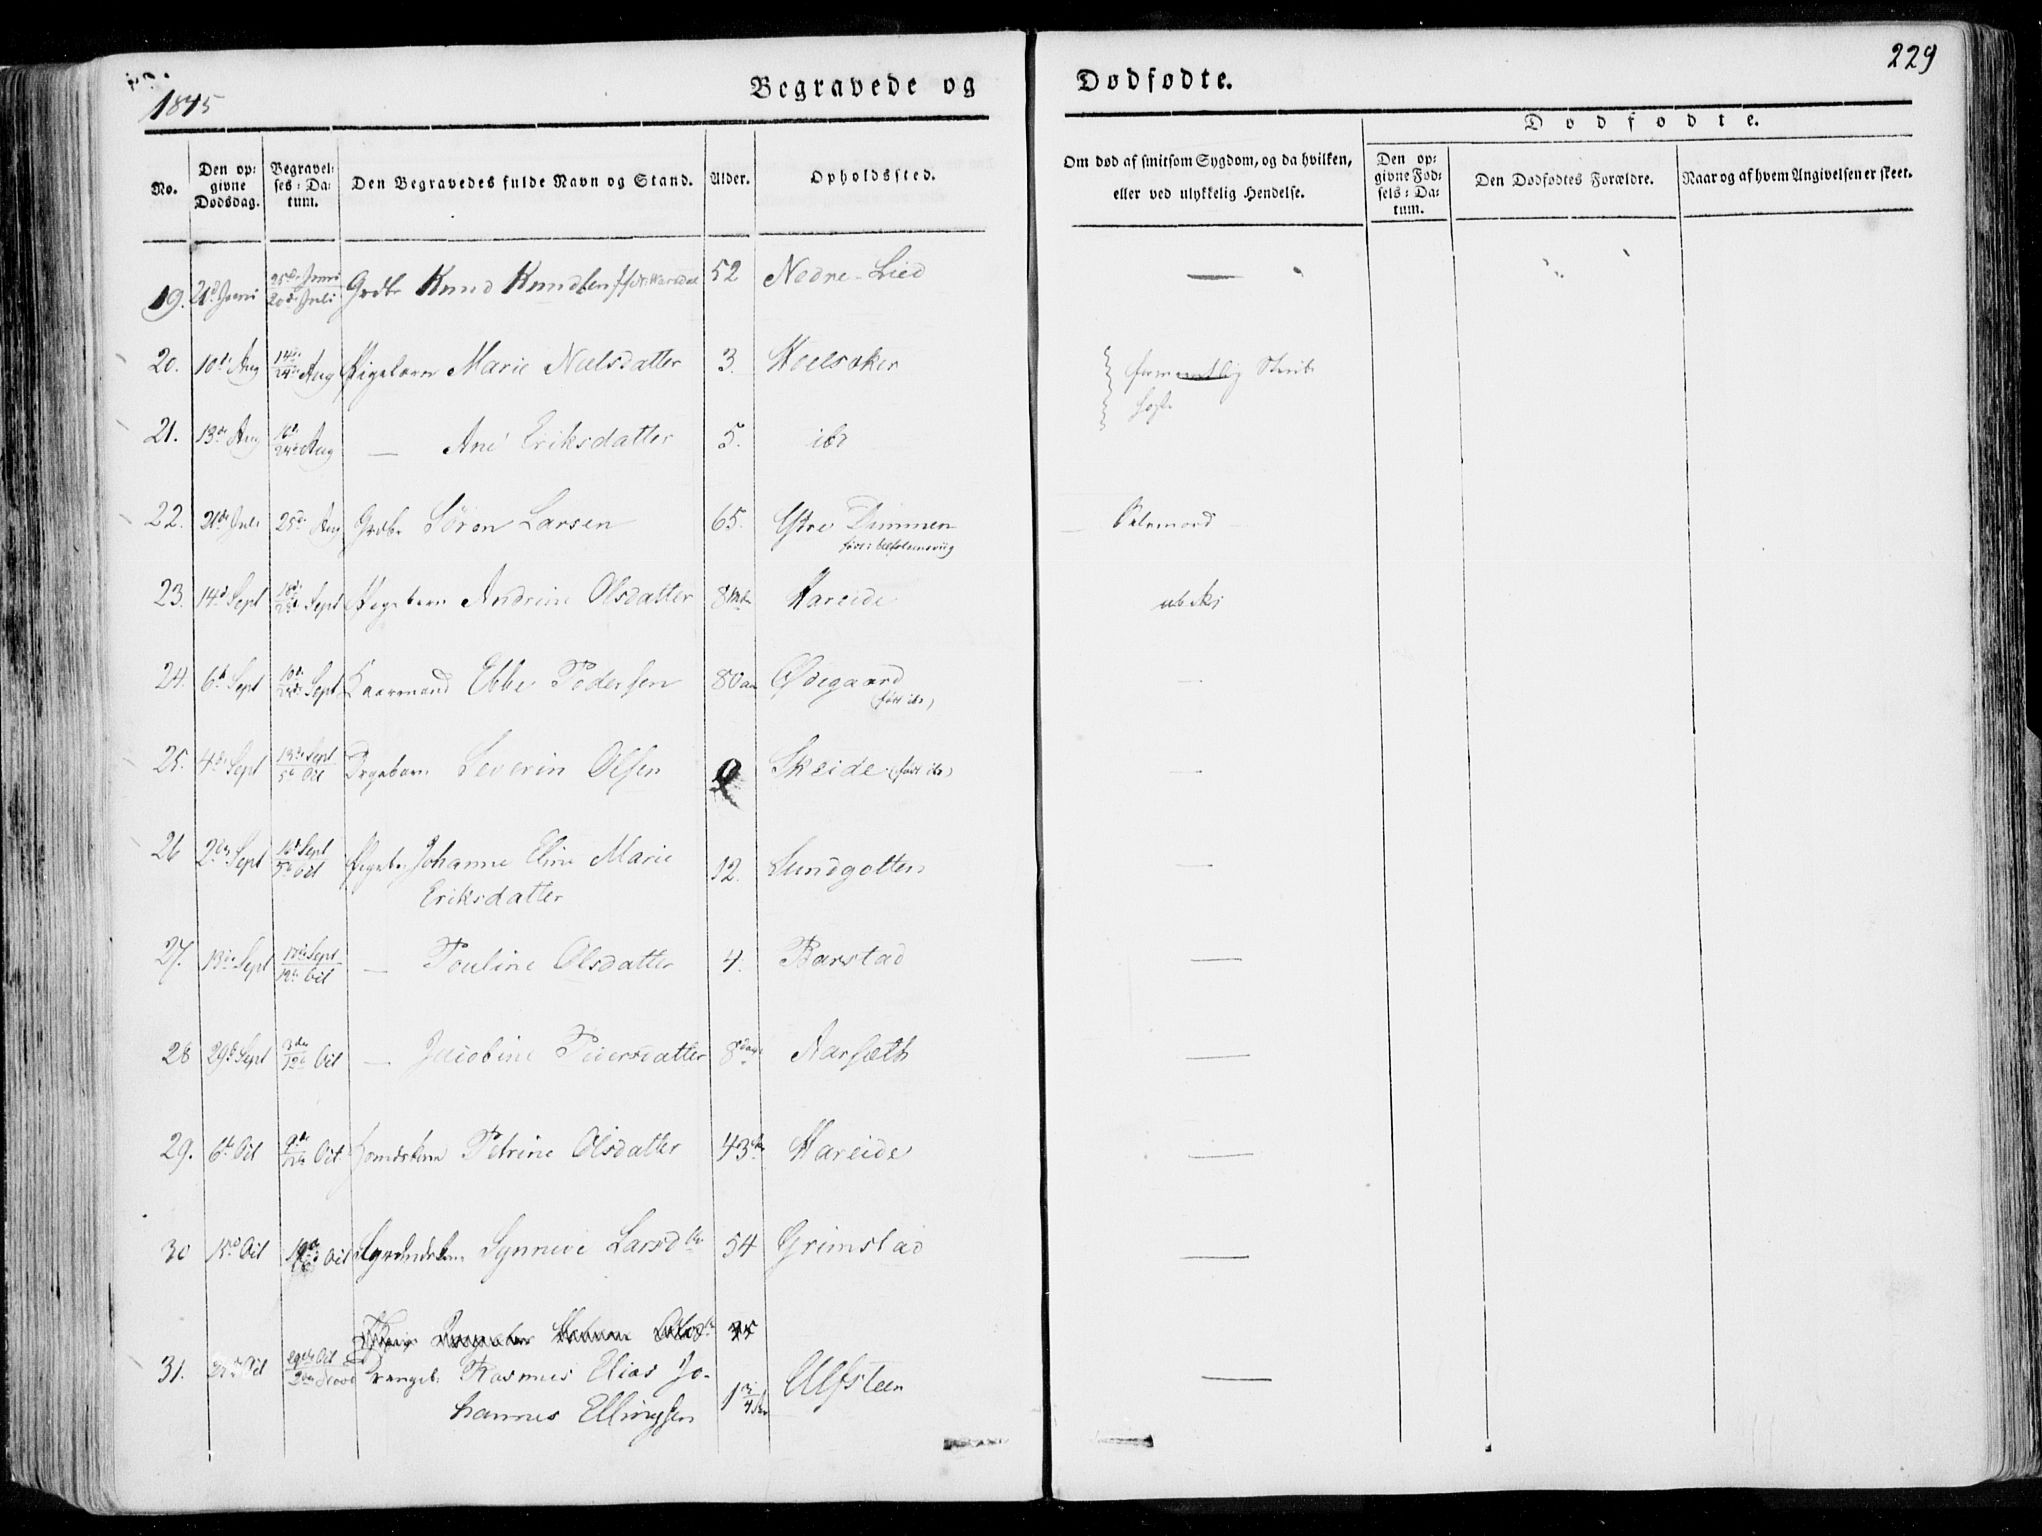 229
1845
Begravede og Dødfødte.
Dødfødte.
No.
Den op:
givne
Dødsdag.
Begravel:
ses: Da:
tum.
Den Begravedes fulde Navn og Stand.
Alder.
Opholdssted.
Om død af smitsom Sygdom, og da hvilken,
eller ved ulykkelig Hendelse.
Den op:
givne Fød:
sels: Da:
tum.
Den Dødfødtes Forældre.
Naar og af hvem Angivelsen er skeet.
19. 21d Juni 25de Juni 20de Juli Grdbr Knud Knudsen 52 Nedre-Lied
20. 10de Aug 14de 24de Aug Pigebarn Marie Nielsdatter 3. Hoelsaker
21. 13de Aug 24de Aug — Ane Eriksdatter 5. ibd
22. 21de Juli 25de Aug Grdbr Søren Larsen 65. Ystre Dimmen
23. 14d Sept 18de Sept Pigebarn Andrine Olsdatter 8 Hareide
24. 6te Sept 10de Sept Kaarmand Ebbe Pedersen 80 aar Ødegaard
(født ibd)
25. 4de Sept 13de Sept 5te Oct Drgebarn Severin Olsen Skeide (født ibd)
26 2den Sept Sept 5te Oct Pigeb. Johanne Eline Marie 12. Sundgotten
Eriksdatter
27. 13de Sept 17de Sept 19de Oct — Pouline Olsdatter 4. Barstad
28 29de Sept 3die 12te Oct — Jacobine Pedersdatter 8 dage Aarsæth
29. 6te Oct 9de 12te Oct Petrine Olsdatter 43 Hareide
30 15de Oct 19de Oct Synneve Larsdtr 54 Grimstad
31. Oct 29de Oct 2den Novb Drengeb. Rasmus Elias Jo-
hannes Ellingsen 1 Ulfsteen